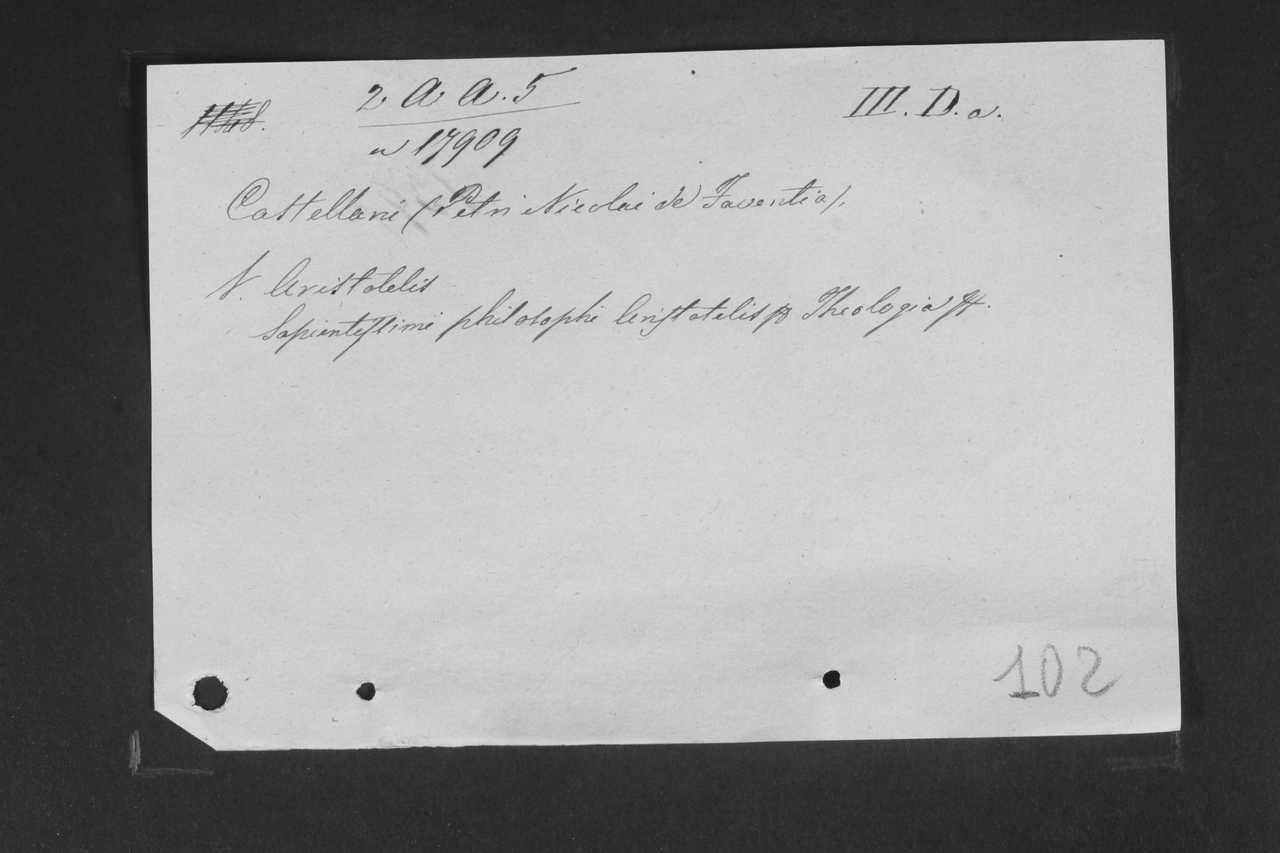 2 A A. 5
III. D. a.
n 17909
Castellani (Petri Nicolai de Faventia).
V. Aristotelis
Sapientissimi philosophi Aristotelis Theologia
102